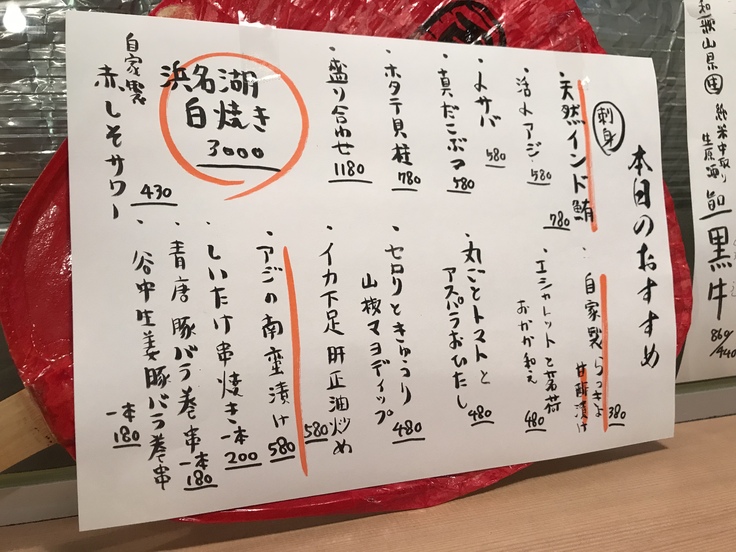 本日のおすすめ
刺身
・天然インド鮪
780
・活〆アジ
580
・〆サバ
580
・真だこぶつ
580
・ホタテ貝柱
780
・盛り合わせ
1180
浜名湖
白焼き
3000
自家製
赤しそサワー
430
・自家製らっきょ
甘酢漬け
380
・エシャレットと茗荷
おかか和え
480
・丸ごとトマトと
アスパラおひたし
480
・セロリときゅうり
山椒マヨディップ
480
・イカ下足肝正油炒め
580
・アジの南蛮漬け
580
・しいたけ串焼き一本
200
・青唐豚バラ巻串
一本
180
・谷中生姜豚バラ巻串
一本
180
和歌山県
純米中取り
生原酒
黒牛
860/
/440